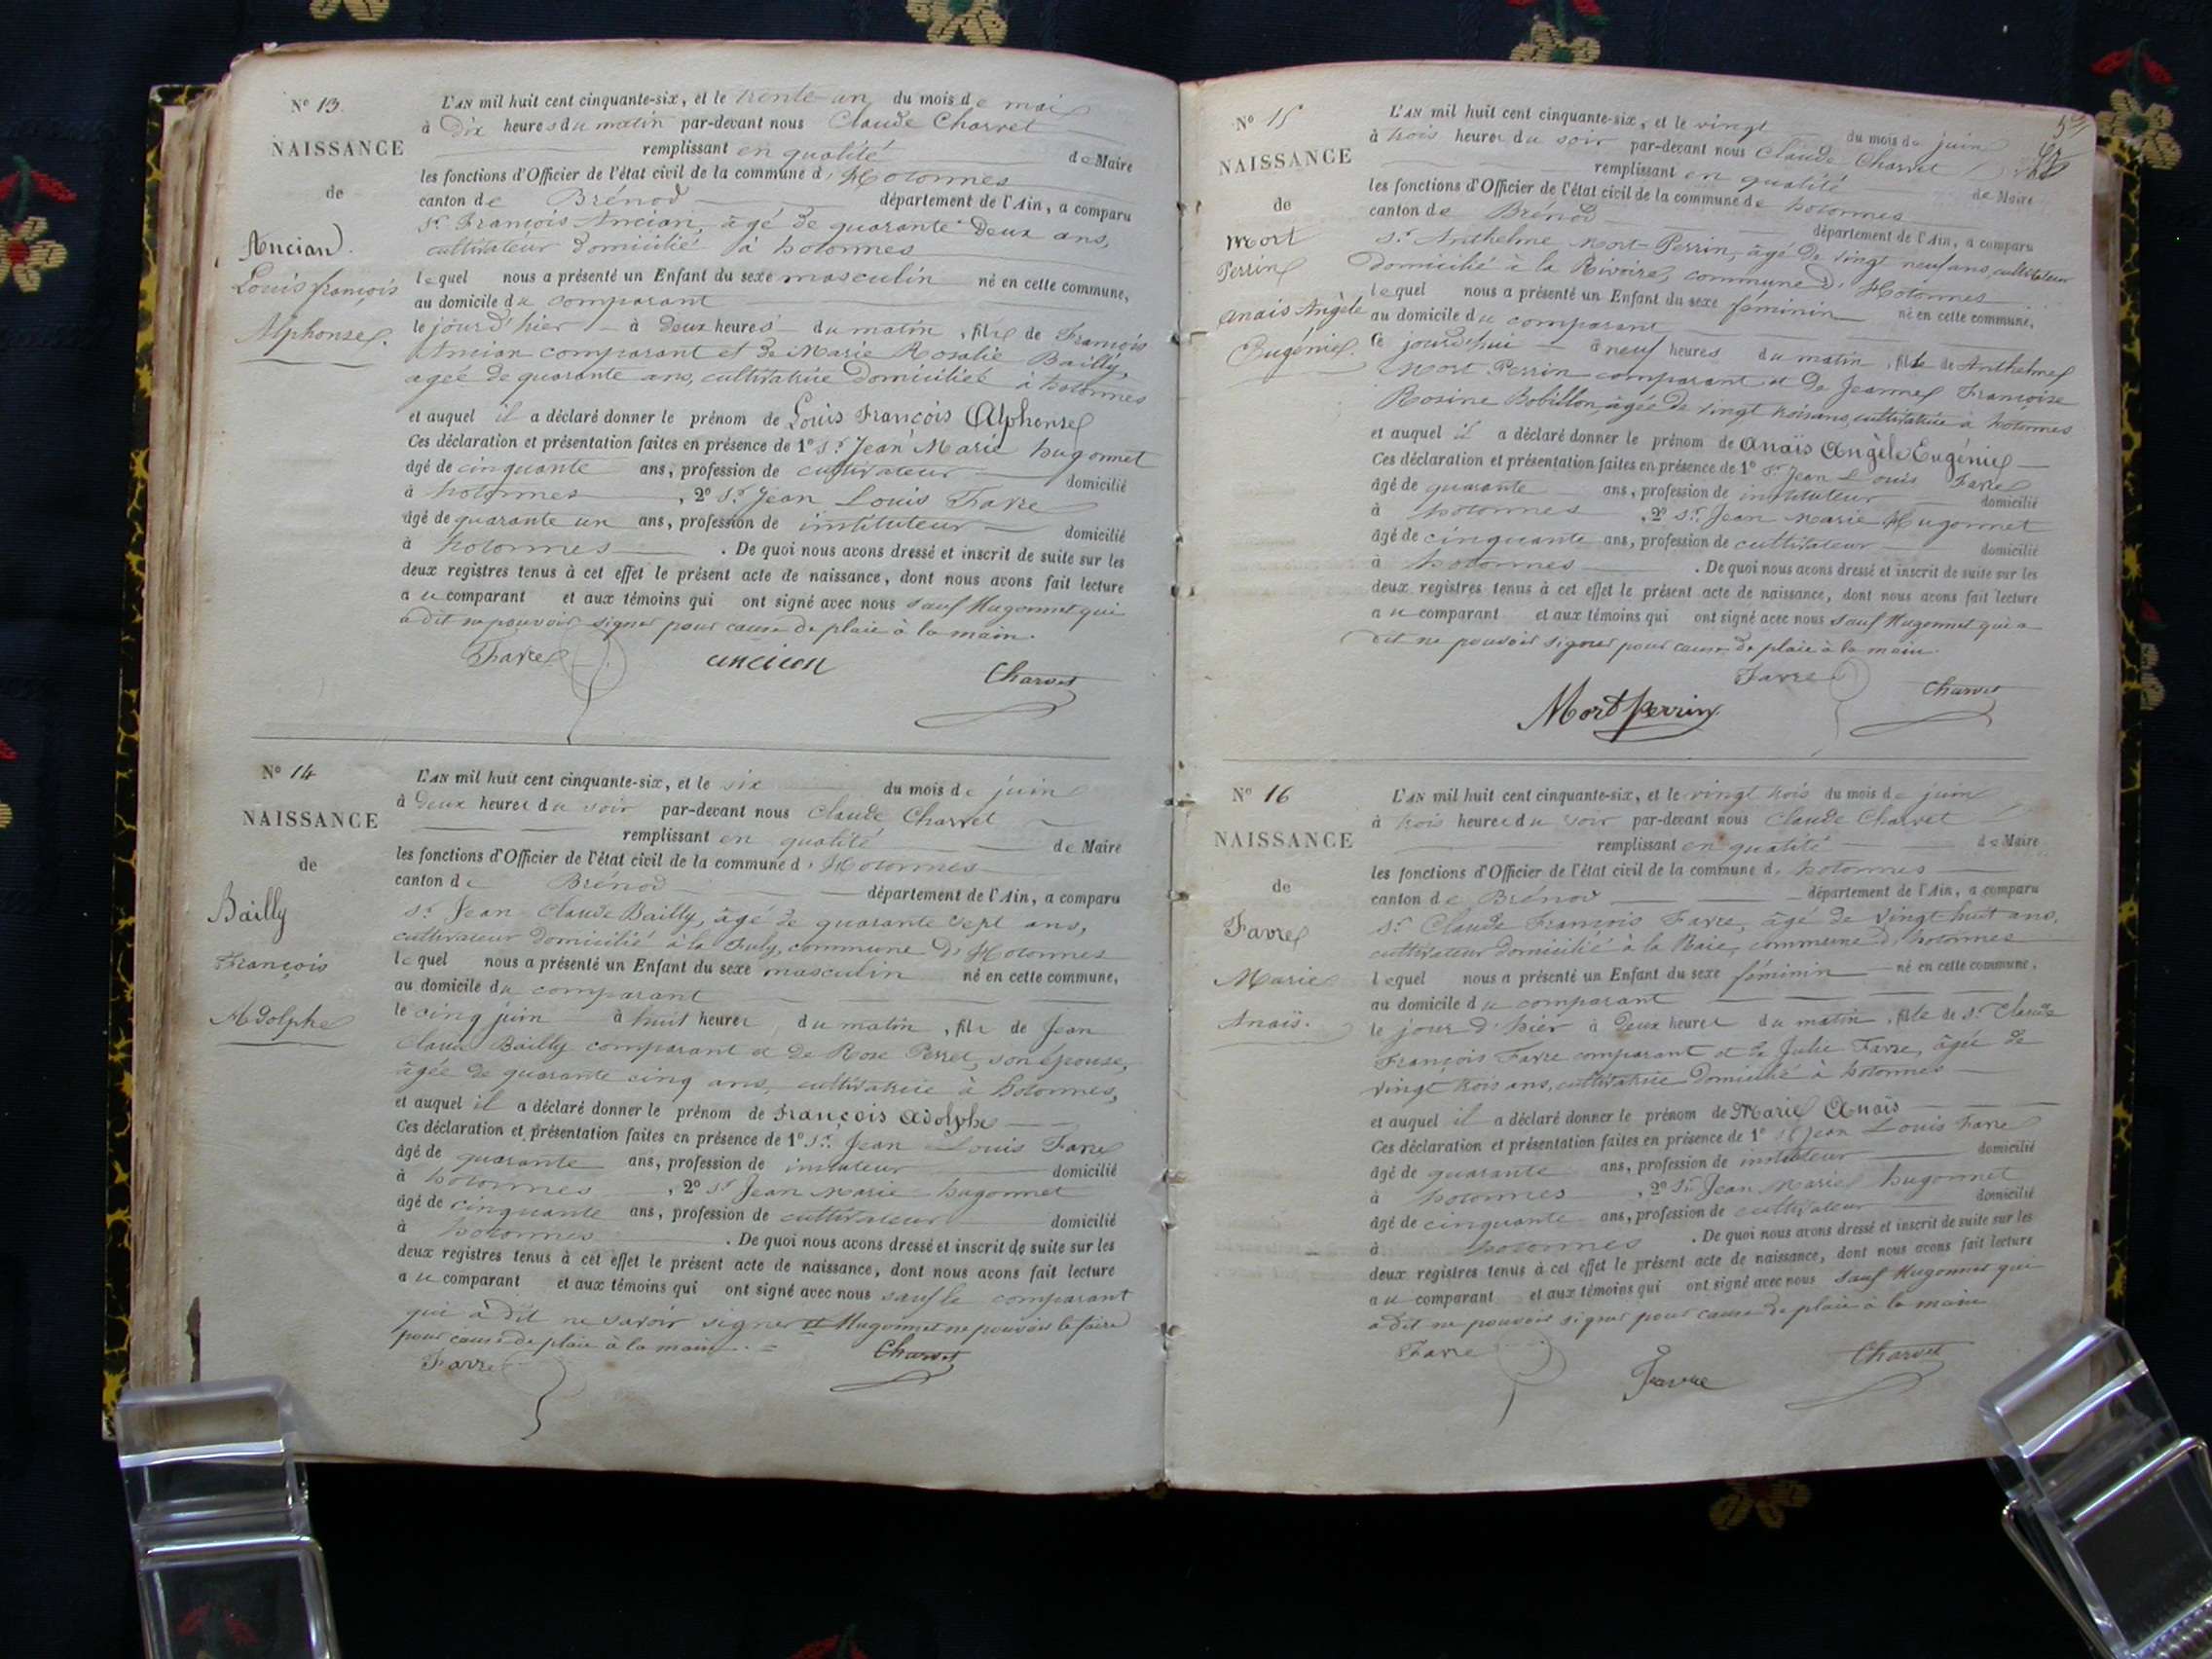 N° 13.
NAISSANCE
de
Ancian
Louis françois
Alphonse.
L'AN mil huit cent cinquante-six, et le trente-un du mois de mai
à dix heures du matin par-devant nous Claude Charvet
remplissant en qualité de Maire
les fonctions d'Officier de l'état civil de la commune d'Hotonnes
canton de Brénod département de l'Ain, a comparu
sr. François Ancian, âgé de quarante deux ans,
cultivateur domicilié à hotonnes
lequel nous a présenté un Enfant du sexe masculin né en cette commune,
au domicile du comparant
le jour d'hier à deux heures du matin, fils de François
Ancian comparant et de Marie Rosalie Bailly,
agée de quarante ans, cultivatrice domiciliée à hotonnes
et auquel il a déclaré donner le prénom de Louis François Alphonse
Ces déclaration et présentation faites en présence de 1° sr. Jean Marie hugonnet
âgé de cinquante ans, profession de cultivateur domicilié
à hotonnes, 2° sr. Jean Louis Favre
âgé de quarante un ans, profession de instituteur domicilié
à hotonnes. De quoi nous avons dressé et inscrit de suite sur les
deux registres tenus à cet effet le présent acte de naissance, dont nous avons fait lecture
au comparant et aux témoins qui ont signé avec nous sauf Hugonnet qui
a dit ne pouvoir signer pour cause de plaie à la main.
Favre ancian Charvet
N° 14
NAISSANCE
de
Bailly
François
Adolphe
L'AN mil huit cent cinquante-six, et le six du mois de juin
à deux heures du soir par-devant nous Claude Charvet
remplissant en qualité de Maire
les fonctions d'Officier de l'état civil de la commune d'Hotonnes
canton de Brénod département de l'Ain, a comparu
sr. Jean Claude Bailly, âgé de quarante sept ans,
cultivateur domicilié à la commune d'Hotonnes
lequel nous a présenté un Enfant du sexe masculin né en cette commune,
au domicile du comparant
le cinq juin à huit heures du matin, fils de Jean
Claude Bailly comparant et de Rose Perret, son épouse,
âgée de quarante cinq ans, cultivatrice à hotonnes,
et auquel il a déclaré donner le prénom de François Adolphe
Ces déclaration et présentation faites en présence de 1° sr. Jean Louis Favre
âgé de quarante ans, profession de domicilié
à hotonnes, 2° sr Jean Marie hugonnet
âgé de cinquante ans, profession de cultivateur domicilié
à hotonnes. De quoi nous avons dressé et inscrit de suite sur les
deux registres tenus à cet effet le présent acte de naissance, dont nous avons fait lecture
au comparant et aux témoins qui ont signé avec nous sauf le comparant
qui à dit ne savoir signer et Hugonnet ne pouvoir le faire
pour cause de plaie à la main.
Favre Charvet
N° 15
NAISSANCE
de
Mort
Perrin
Anaïs Angèle
Eugénie.
L'AN mil huit cent cinquante-six, et le vingt du mois de juin
à trois heures du soir par-devant nous Claude Charvet
remplissant en qualité de Maire
les fonctions d'Officier de l'état civil de la commune de hotonnes
canton de Brénod département de l'Ain, a comparu
sr. Anthelme Mort-Perrin, âgé de vingt neuf ans, cultivateur
domicilié à la Rivoire, commune d'Hotonnes
lequel nous a présenté un Enfant du sexe féminin né en cette commune,
au domicile du comparant
le jourd'hui à neuf heures du matin, fille de Anthelme
Mort Perrin comparant et de Jeanne Françoise
Rosine Bobillon âgée de vingt trois ans, cultivatrice à hotonnes
et auquel il a déclaré donner le prénom de Anaïs Angèle Eugénie
Ces déclaration et présentation faites en présence de 1° sr Jean Louis Favre
âgé de quarante ans, profession de instituteur domicilié
à hotonnes, 2° sr. Jean Marie Hugonnet
âgé de cinquante ans, profession de cultivateur domicilié
à hotonnes. De quoi nous avons dressé et inscrit de suite sur les
deux registres tenus à cet effet le présent acte de naissance, dont nous avons fait lecture
au comparant et aux témoins qui ont signé avec nous sauf Hugonnet qui a
dit ne pouvoir signer pour cause de plaie à la main.
Favre Charvet
Mort Perrin
N° 16
NAISSANCE
de
Favre
Marie
Anaïs.
L'AN mil huit cent cinquante-six, et le vingt trois du mois de juin
à trois heures du soir par-devant nous Claude Charvet
remplissant en qualité de Maire
les fonctions d'Officier de l'état civil de la commune d'hotonnes
canton de Brénod département de l'Ain, a comparu
sr. Claude François Favre, âgé de vingt huit ans,
cultivateur domicilié à la commune d'hotonnes
lequel nous a présenté un Enfant du sexe féminin né en cette commune,
au domicile du comparant
le jour d'hier à deux heures du matin, fille de sr. Claude
François Favre comparant et de Julie Favre, âgée de
vingt trois ans, cultivatrice domicilié à hotonnes
et auquel il a déclaré donner le prénom de Marie Anaïs
Ces déclaration et présentation faites en présence de 1° sr Jean Louis Favre
âgé de quarante ans, profession de instituteur domicilié
à hotonnes, 2° sr. Jean Marie hugonnet
âgé de cinquante ans, profession de cultivateur domicilié
à hotonnes. De quoi nous avons dressé et inscrit de suite sur les
deux registres tenus à cet effet le présent acte de naissance, dont nous avons fait lecture
au comparant et aux témoins qui ont signé avec nous sauf Hugonnet qui
a dit ne pouvoir signer pour cause de plaie à la main
Favre Favre Charvet